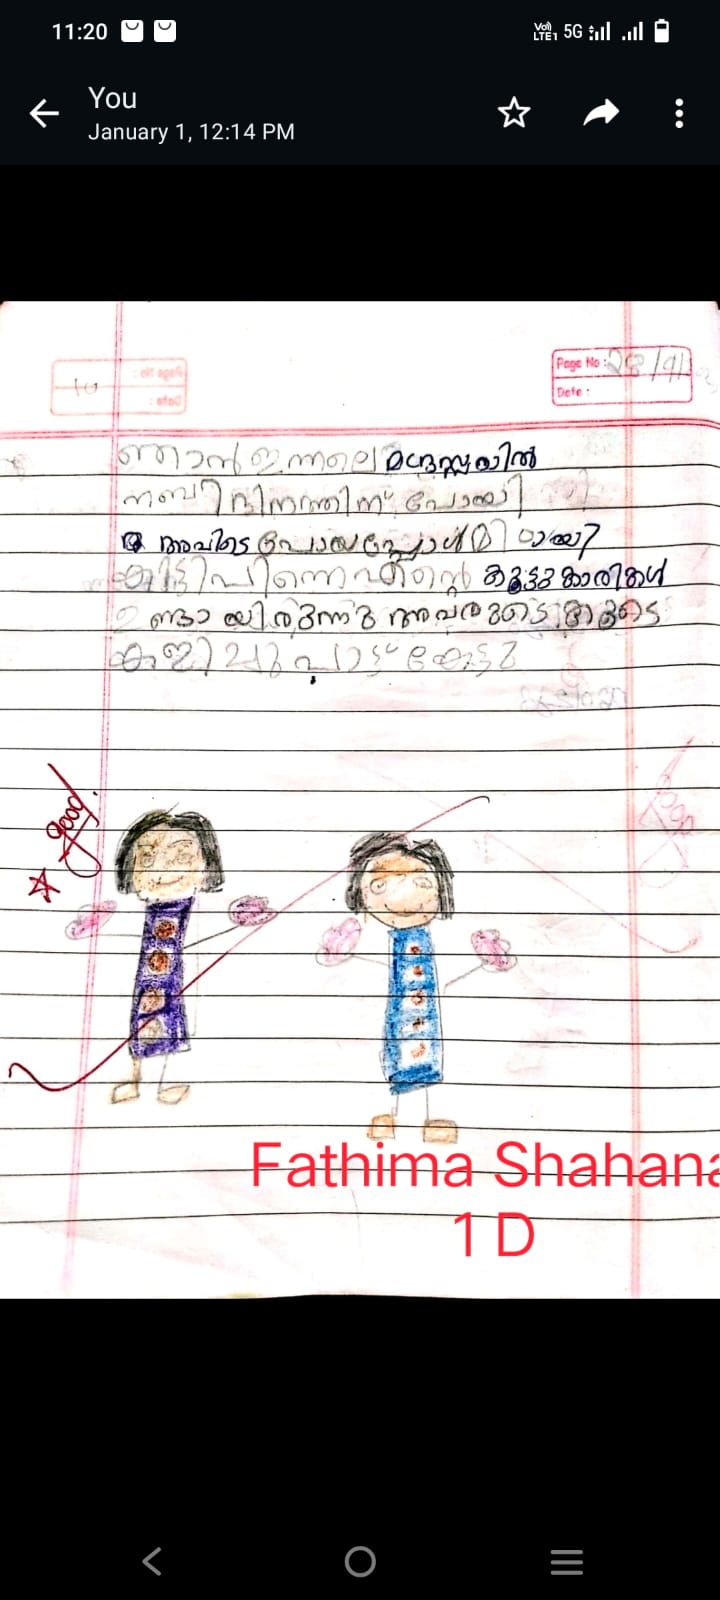 11:20
VoI) LTE1 5G
You
January 1, 12:14 PM
Page No :
Date :
ഞാൻ ഇന്നലെ മദ്രസ്സയിൽ
നബിദിനത്തിന് പോയി
അവിടെ പോയപ്പോൾ മിഠായി
കിട്ടി പിന്നെ എന്റെ കൂട്ടുകാരികൾ
ഉണ്ടായിരുന്നു അവരുടെ കൂടെ
കളിച്ചു പാട്ട് കേട്ടു
good
Fathima Shahana
1 D